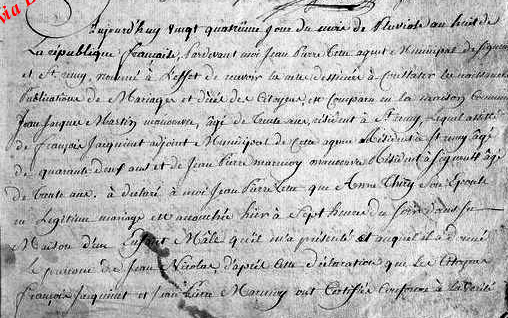 via
Aujourd'huy vingt quatrieme jour du mois de Pluviose au huit de
La republique francaise, pardevant moi Jean Pierre agent Municipal de
et St remy, nommé à l'effet de recevoir les actes destinés à Constater les naissances
Publications de Mariages et décès des Citoyens, est Comparu en la maison Commune
Jean Jacques Martin manoeuvre, âgé de trente ans, résident à St remy Lequel assisté
de françois Jacquinet adjoint Municipal de cette agence Résident à St remy âgé
de quarante neuf ans et de Jean Pierre manoeuvre Résident à âgé
de trente ans. à declaré à moi Jean Pierre que Anne Thiry Son Epouse
en Legitime mariage est accouchée hier à Sept heures du Soir dans sa
Maison d'un Enfant Mâle qu'il m'a présenté et auquel il a donné
le prenom de Jean Nicolas, d'après cette déclaration que les Citoyens
françois Jacquinet et Jean Pierre ont Certifiée Conforme à la Vérité